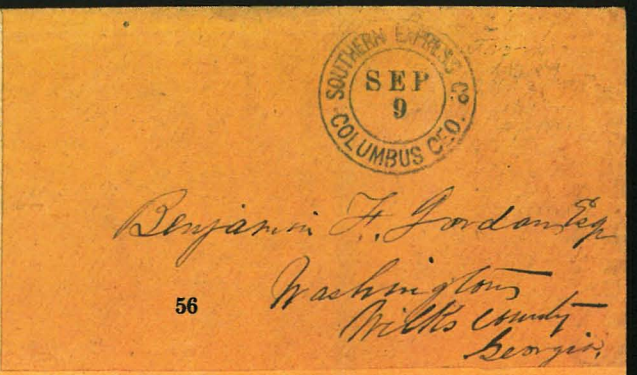 SOUTHERN EXPRESS Co
SEP
9
COLUMBUS GEO.
Benjamin F. Jordan Esq
Washington
56
Wilks County
Georgia.